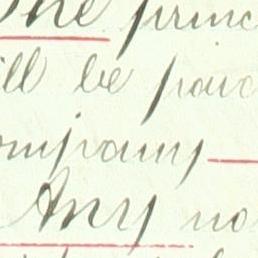 The princ
ill be paid
ompany
Any no